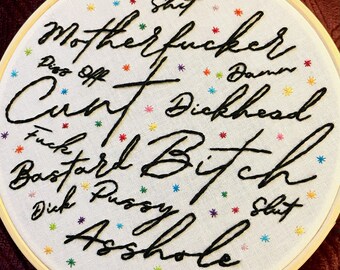 Shit
Motherfucker
Piss Off Damn
Cunt Dickhead
Fuck
Bastard Bitch
Dick Pussy Slut
Asshole